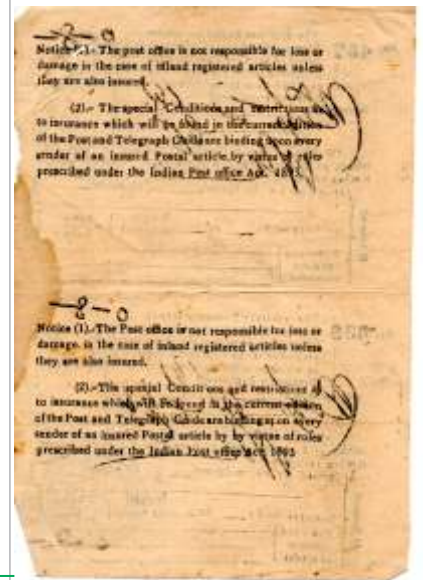 -2-0
Notice (1).- The post office is not responsible for loss or
damage in the case of inland registered articles unless
they are also insured.
(2).- The special Conditions and restrictions as
to insurance which will be found in the current edition
of the Post and Telegraph Guide are binding upon every
sender of an insured Postal article by virtue of rules
prescribed under the Indian Post office Act. 1893
-2-0
Notice (1).-The Post office is not responsible for loss or
damage. in the case of inland registered articles unless
they are also insured.
(2).-The special Conditions and restrictions as
to insurance which will be found in the current edition
of the Post and Telegraph Guide are binding upon every
sender of an insured Postal article by by virtue of rules
prescribed under the Indian Post office Act. 1893